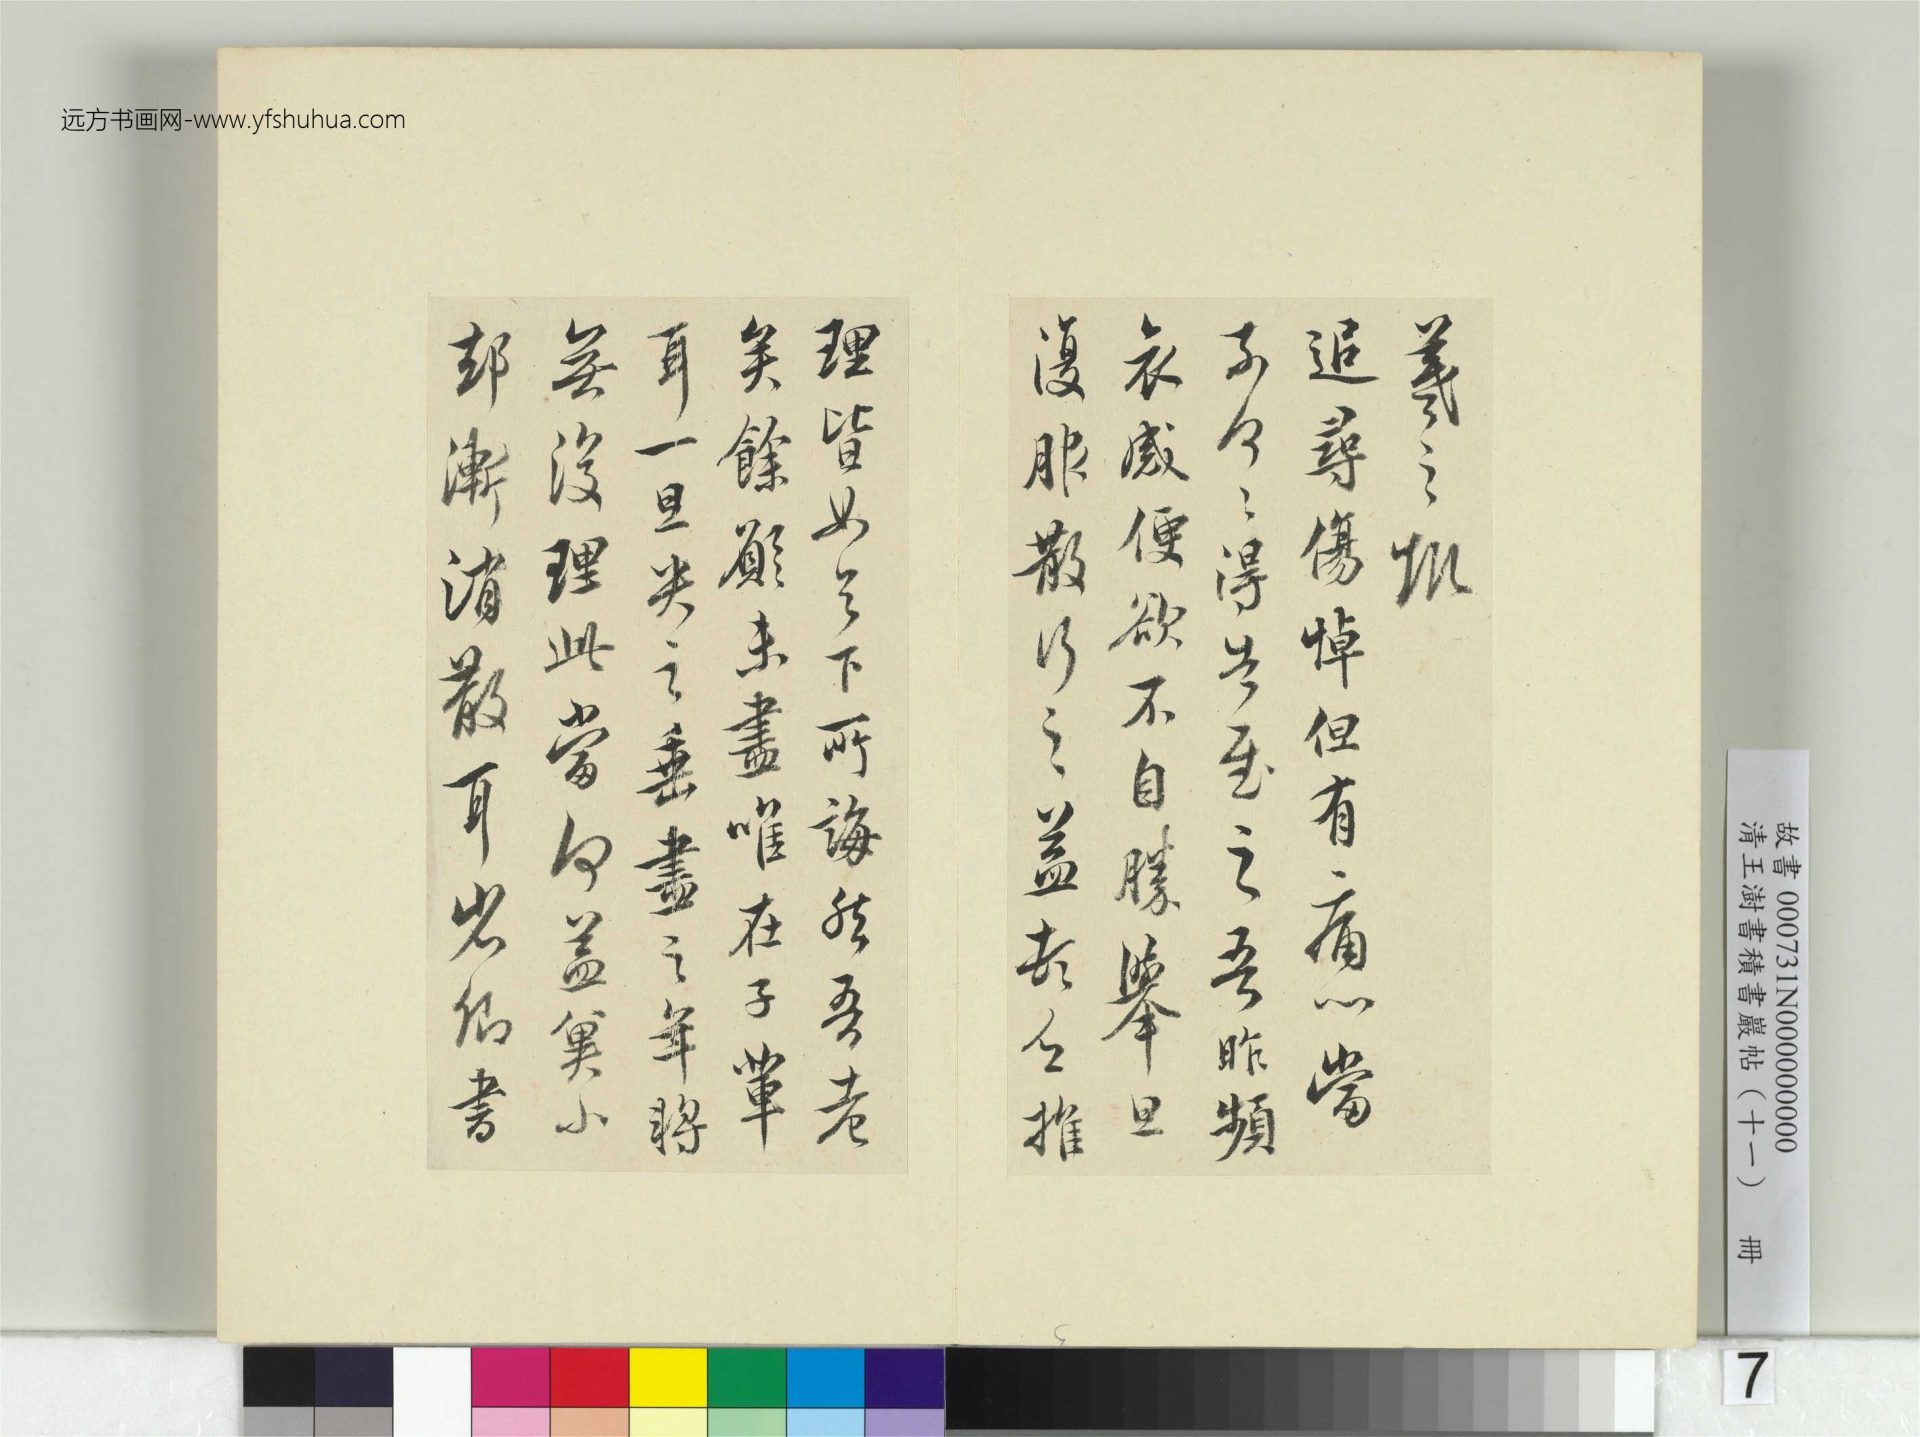 羲之
追尋傷悼但有痛心當
奈何〻得告慰之吾昨頻
哀感便欲不自勝舉旦
復服散行之益頓乏推
理皆如足下所誨然吾老
矣餘願未盡唯在子輩
耳一旦哭之垂盡之年將
無復理此當何益冀小
卻漸消散耳省卿書
故書000731N000000000
清王澍書積書巖帖（十一） 冊
7
远方书画网-www.yfshuhua.com